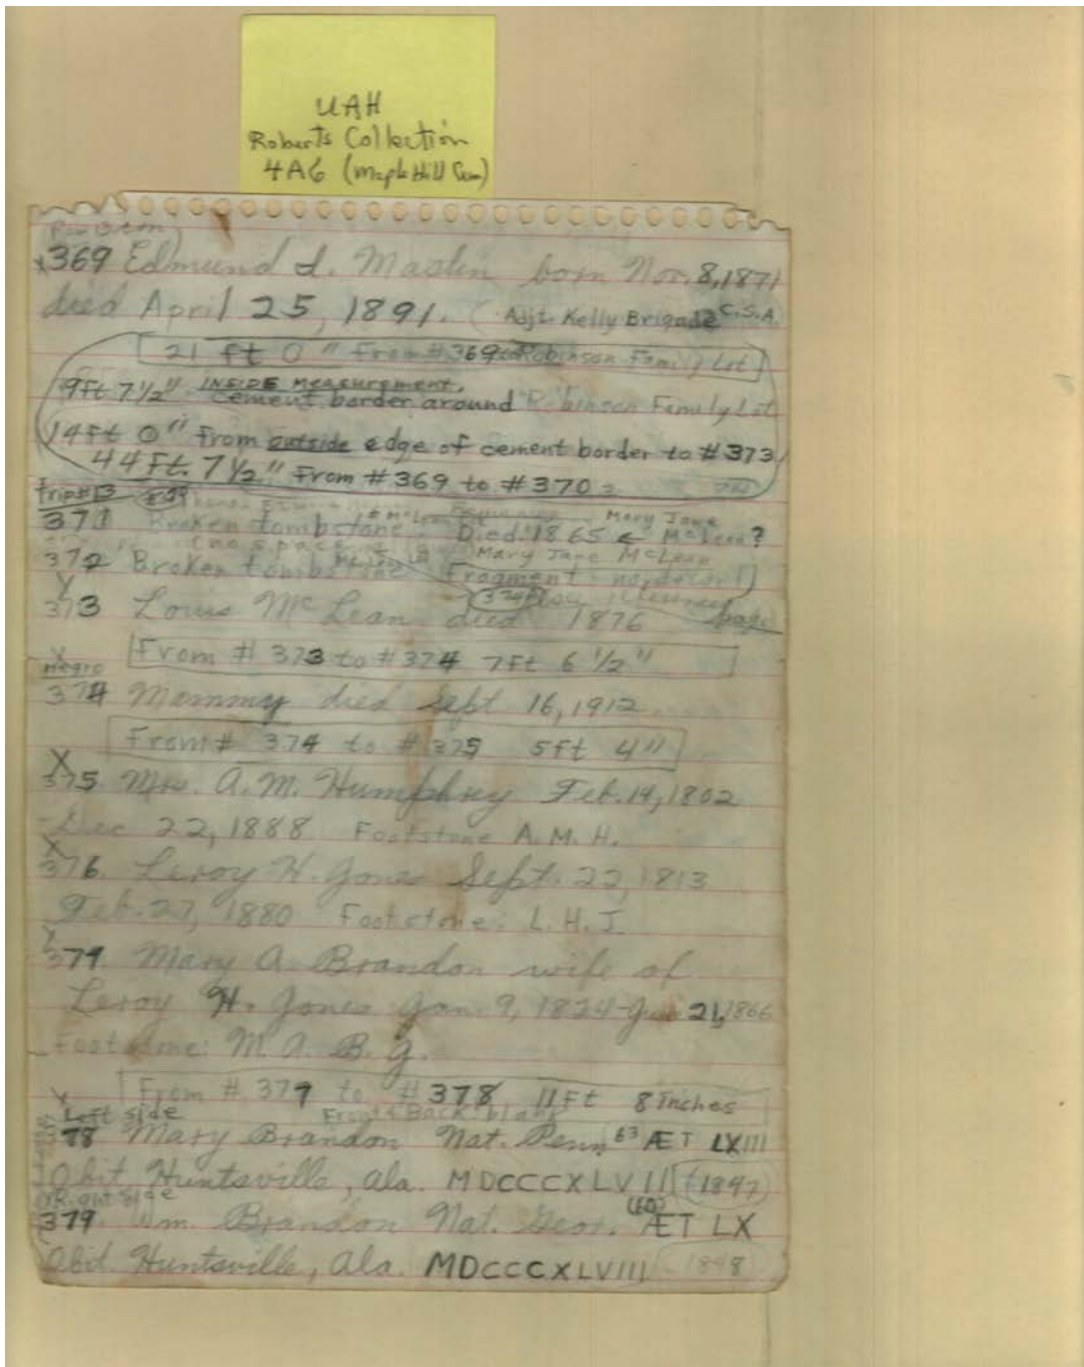 UAH
Roberts Collection
4A6 (Maple Hill Cem)
x369 Edmund I. Mastin born Nov. 8, 1871
died April 25, 1891. (Adjt. Kelly Brigade C.S.A.
21 ft 0" From #369 to Robinson Family Lot
9ft 7 1/2" INSIDE Measurement,
cement border around Robinson Family Lot
14ft 0" from outside edge of cement border to #373
44 Ft. 7 1/2" From #369 to #370
Mary Jane
371 Broken tombstone. Died 1865 ← McLean?
Mary Jane McLean
372 Broken tombstone Fragment
373 Louis McLean died 1876 page
From #373 to #374 7ft 6 1/2"
Negro
374 Mammy died Sept 16, 1912.
From # 374 to #375 5ft 4"
X
375. Mrs. A.M. Humphrey Feb. 14, 1802
-Dec 22, 1888 Footstone A. M. H.
X
376. Leroy H. Jones Sept. 22, 1813
Feb. 27, 1880 Footstone: L. H. J.
377. Mary A. Brandon wife of
Leroy H. Jones Jan. 9, 1824- 21, 1866
Footstone: M. A. B. J.
From # 377 to #378 11Ft 8 Inches
Left side Front & Back blank
378 Mary Brandon Nat. Penn 63 ÆT LXIII
Obit Huntsville, Ala. MDCCCXLVII (1847)
Right Side
379. Wm. Brandon Nat. Geor. (60) ÆT LX
Obit. Huntsville, Ala. MDCCCXLVIII (1848)